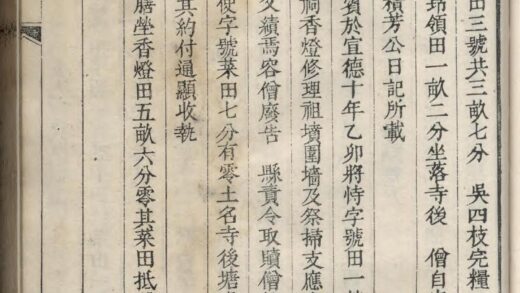 田三號共三畝七分　吳四枝完糧
領田一畝二分坐落寺後　僧自
積芳公日記所載
賓於宣德十年乙卯將恃字號田一
祠香燈修理祖墳圍墻及祭掃支應
績焉容僧廢告　縣責令取贖僧
使字號菜田七分有零土名寺後塘
其約付通顯收執
膳塋香燈田五畝六分零其菜田抵